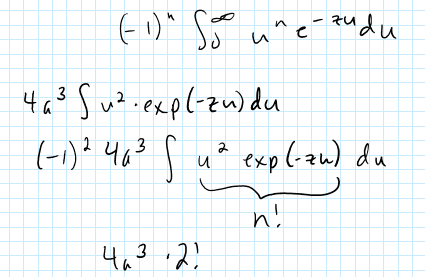 (-1)ⁿ ∫₀^∞ uⁿ e^(-zu) du
4a³ ∫ u² · exp(-zu) du
(-1)² 4a³ ∫ u² exp(-zu) du
n!
4a³ · 2!